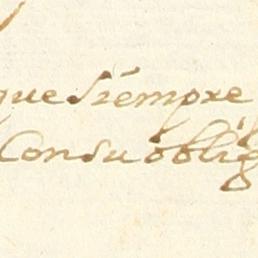 que siempre
Consu oblig